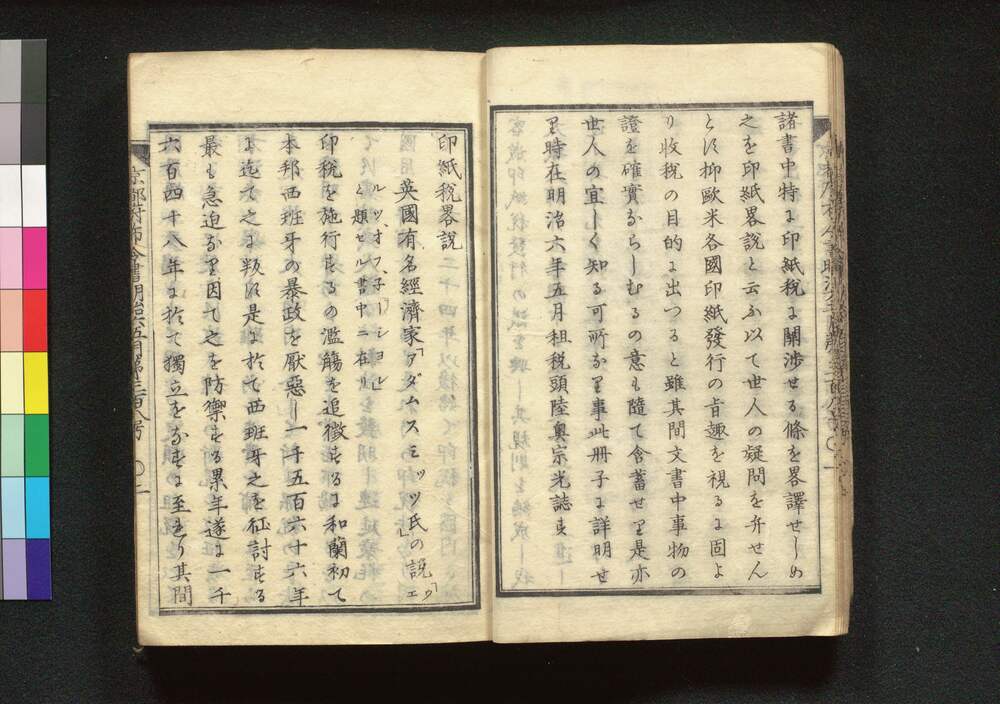 諸書中特ニ印紙税ニ關渉せる條を畧譯せしめ
之を印紙畧説と云ふ以て世人の疑問を弁せん
とす抑歐米各國印紙發行の旨趣を視るに固よ
り收税の目的に出つると雖其間文書中事物の
證を確實ならしむるの意も隨て含蓄せり是亦
世人の宜しく知る可所なり事此册子に詳明せ
り時在明治六年五月租税頭陸奥宗光誌す
印紙税畧説
英國有名經濟家「アダムスミッツ氏の説「ウェ
ルッオフ子ーションと題セル書中ニ在リ」
印税を施行するの濫觴を追徴するに和蘭初て
本邦西班牙の暴政を厭惡し一千五百六十六年
に迄て之に叛く是に於て西班牙之を征討する
最も急迫なり因て之を防禦する累年遂に一千
六百四十八年に於て獨立をなすに至れり其間
京都府布令書明治六年五月第三百八号
〇二